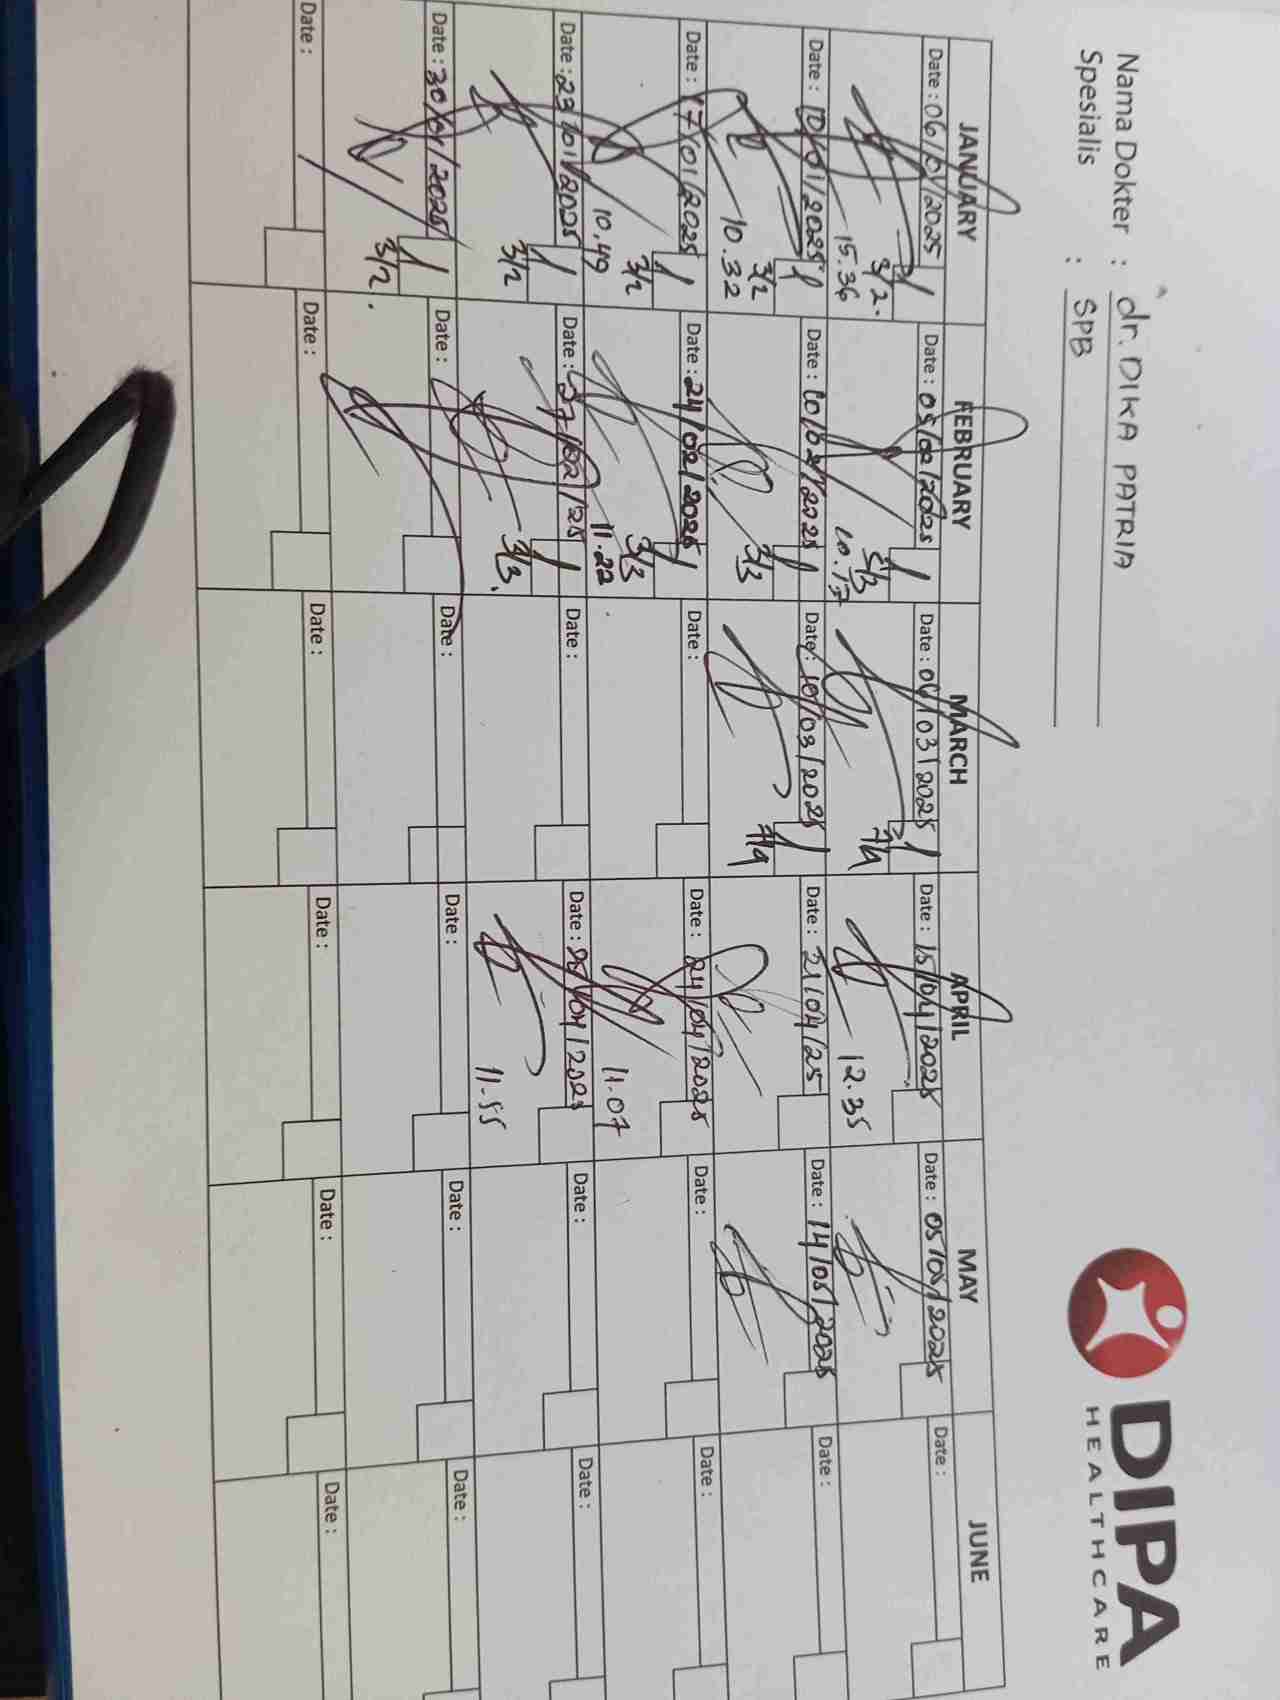 Nama Dokter : dr. DIKA PATRIA
Spesialis : SPB
DIPA
HEALTHCARE
JANUARY FEBRUARY MARCH APRIL MAY JUNE
Date : 06/01/2025 Date : 05/02/2025 Date : 06/03/2025 Date : 15/04/2025 Date : 05/05/2025 Date :
3/2. 3/3 7/4
15.36 10.17 12.35
Date : 10/01/2025 Date : 10/02/2025 Date : 10/03/2025 Date : 21/04/25 Date : 14/05/2025 Date :
3/2 3/3 7/4
10.32
Date : 17/01/2025 Date : 24/02/2025 Date : Date : 24/04/2025 Date : Date :
3/2 3/3
10.49 11.22 11.07
Date : 23/01/2025 Date : 27/02/25 Date : Date : 25/04/2025 Date : Date :
3/2 3/3. 11.55
Date : 30/01/2025 Date : Date : Date : Date : Date :
3/2.
Date : Date : Date : Date : Date : Date :